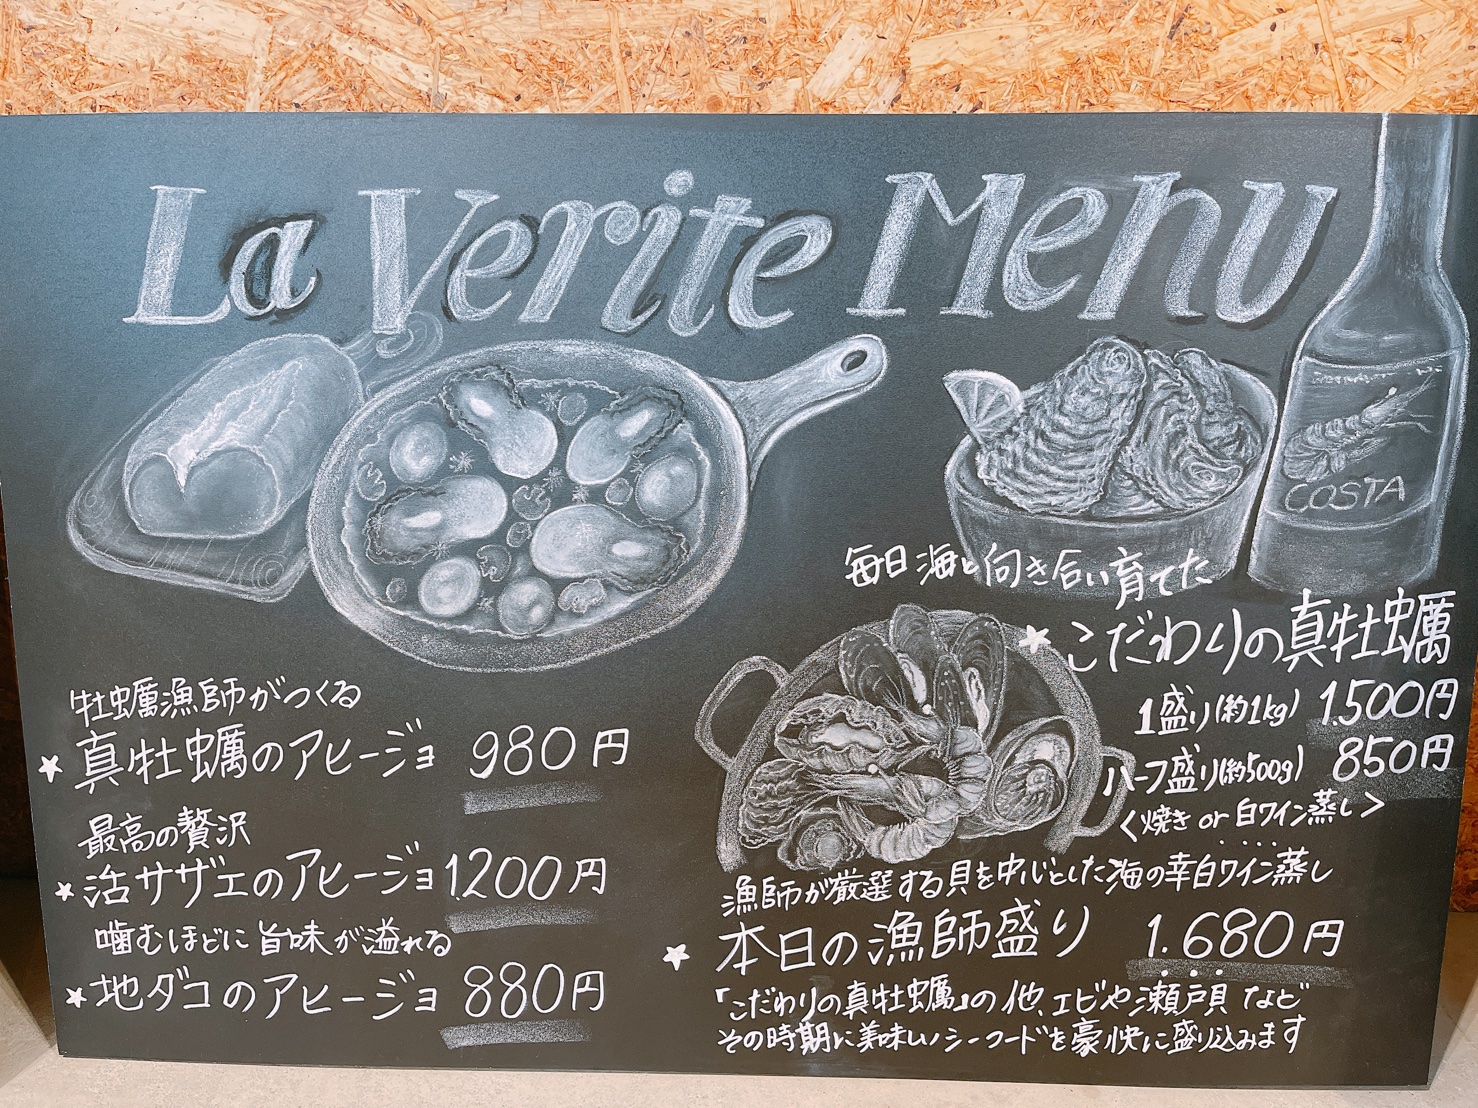 La Verite Menu
COSTA
牡蠣漁師がつくる
★真牡蠣のアヒージョ 980円
最高の贅沢
★活サザエのアヒージョ 1.200円
噛むほどに旨味が溢れる
★地ダコのアヒージョ 880円
毎日海と向き合い育てた
★こだわりの真牡蠣
1盛り(約1kg) 1.500円
ハーフ盛り(約500g) 850円
〈焼き or 白ワイン蒸し〉
漁師が厳選する貝を中心とした海の幸白ワイン蒸し
★本日の漁師盛り 1.680円
「こだわりの真牡蠣」の他、エビや瀬戸貝など
その時期に美味しいシーフードを豪快に盛り込みます